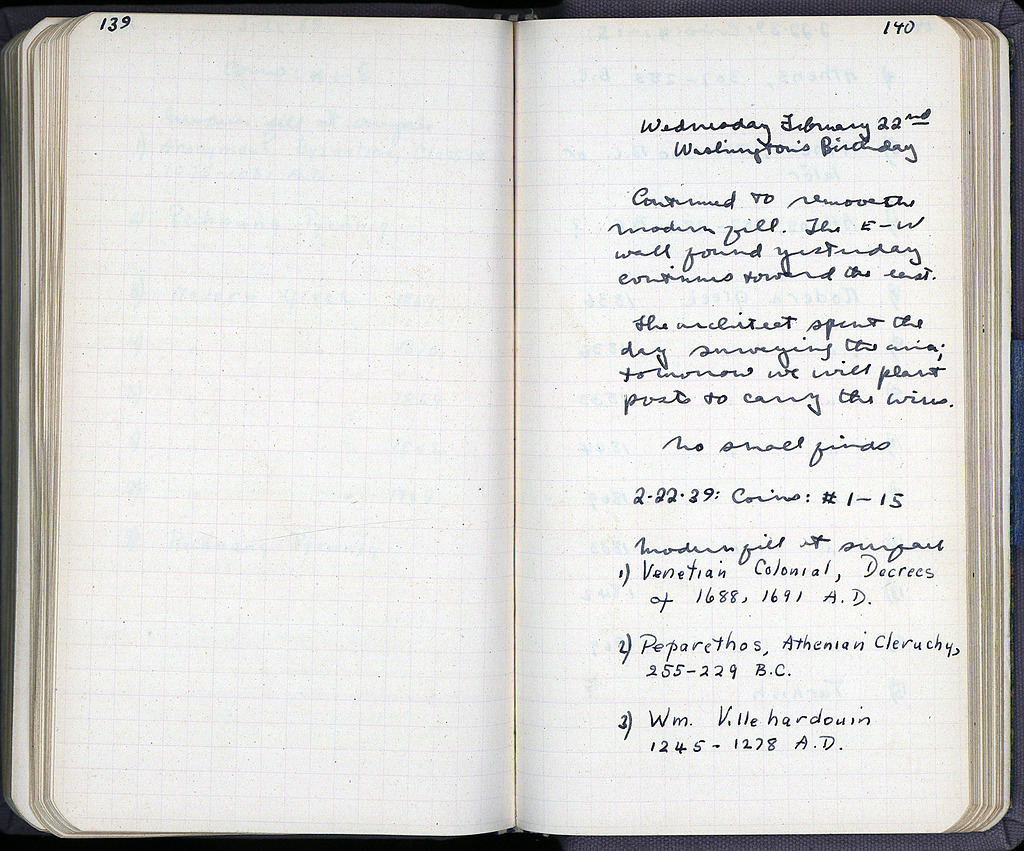 139
140
Wednesday February 22nd
Washington's Birthday
Continued to remove the
modern fill. The E-W
wall found yesterday
continues toward the east.
The architect spent the
day surveying the area;
tomorrow we will plant
posts to carry the wires.
No small finds
2·22·39: Coins: #1-15
Modern fill at surface
1) Venetian Colonial, Decrees
of 1688, 1691 A.D.
2) Peparethos, Athenian Cleruchy,
255-229 B.C.
3) Wm. Villehardouin
1245-1278 A.D.